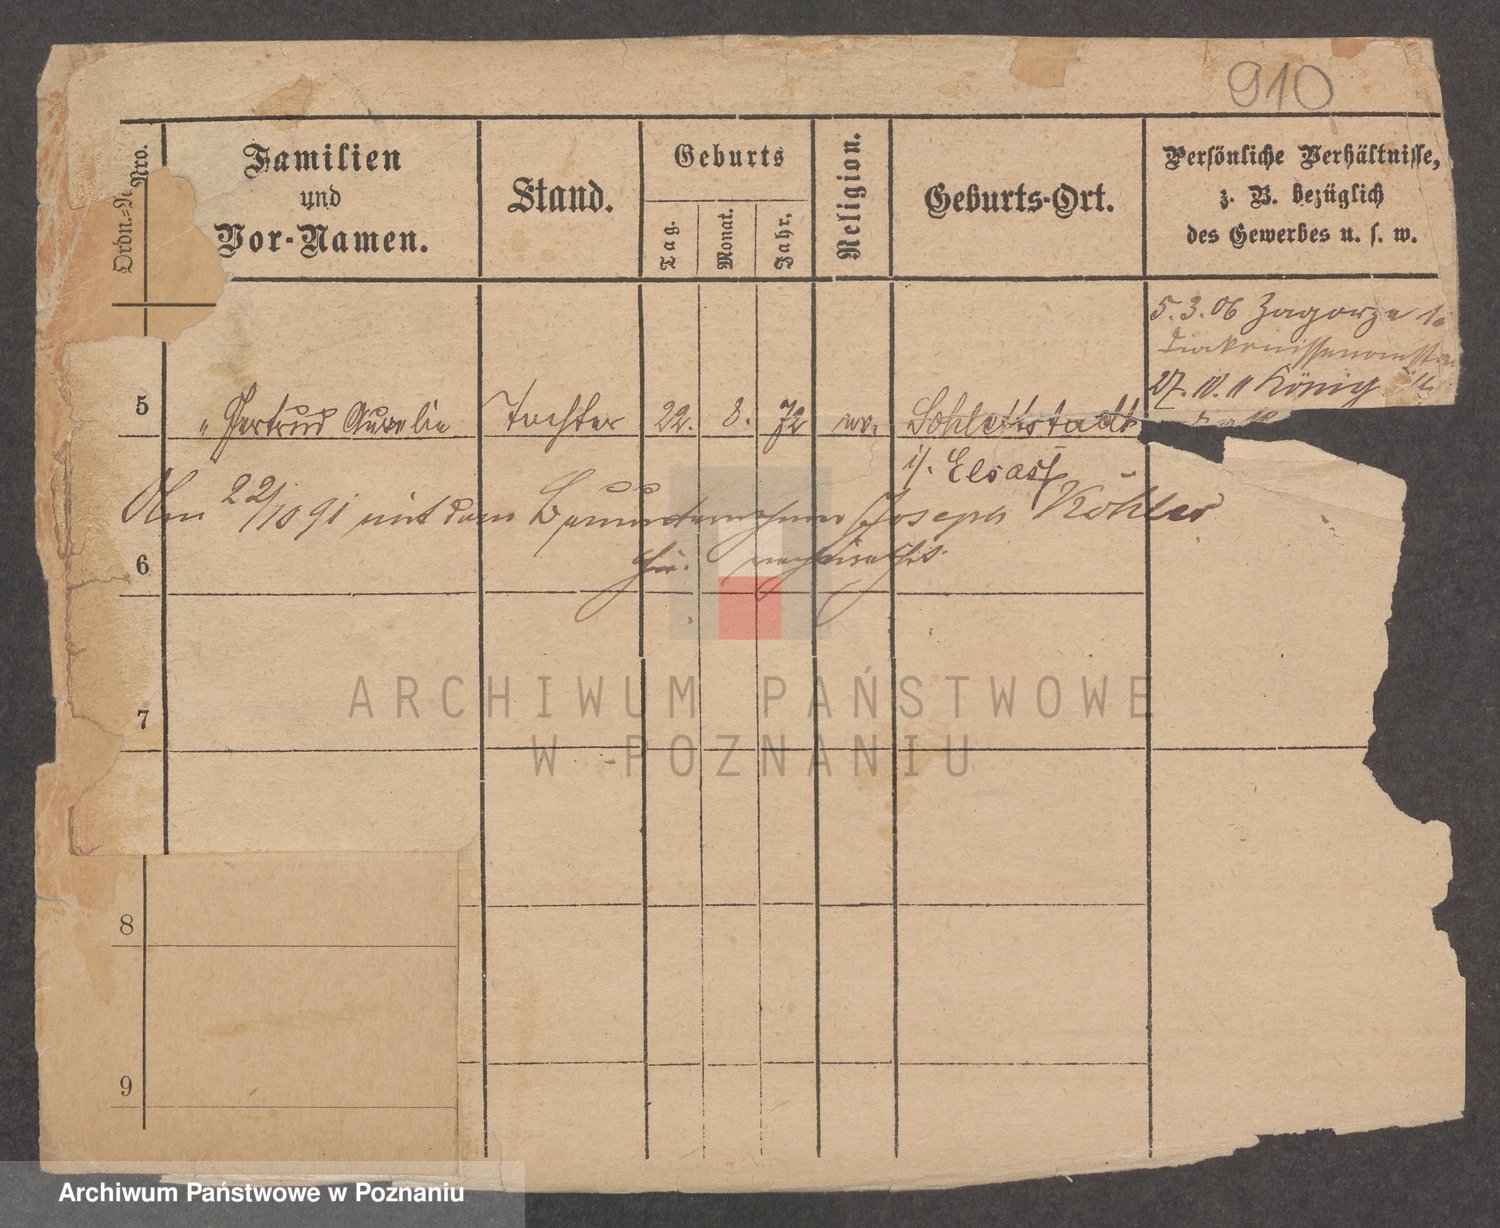 910
Ordn.- Nro.
Familien
und
Vor-Namen.
Stand.
Geburts
Tag.
Monat.
Jahr.
Religion.
Geburts-Ort.
Persönliche Verhältnisse,
z. B. bezüglich
des Gewerbes u. s. w.
5.3.06 Zagorze
27. König
5 " Gertrud Aurelie Tochter 22. 8. 72 ev. Schlettstadt
i/. Elsaß
Am 22/10 91 mit dem Joseph Köhler
6
verheirathet.
7
8
9
ARCHIWUM PAŃSTWOWE
W POZNANIU
Archiwum Państwowe w Poznaniu